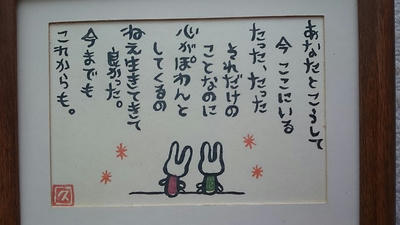 あなたとこうして
今 ここにいる
たった、たった
それだけの
ことなのに
心がぽわんと
してくるの
ねえ生きてきて
良かった。
今までも
これからも。
久